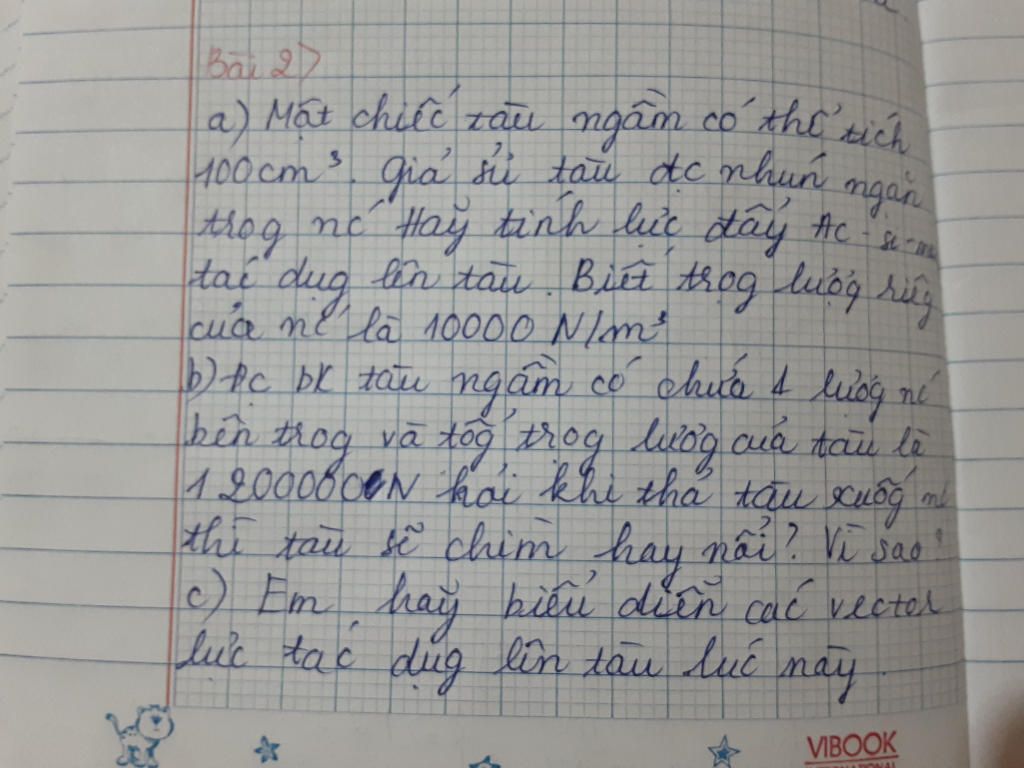 Bài 2>
a) Một chiếc tàu ngầm có thể tích
100cm³. Giả sử tàu đc nhún ngần
trog nć Hãy tính lực đẩy Ac-si-me
tác dụg lên tàu. Biết trọg lượg riêg
của nć là 10000 N/m³
b) Đc bk tàu ngầm có chứa 1 lượg nć
bên trog và tổg trog lượg của tàu là
1200000N hỏi khi thả tàu xuốg nć
thì tàu sẽ chìm hay nổi? Vì sao?
c) Em hãy biểu diễn các vector
lực tác dụg lên tàu lúc này.
VIBOOK